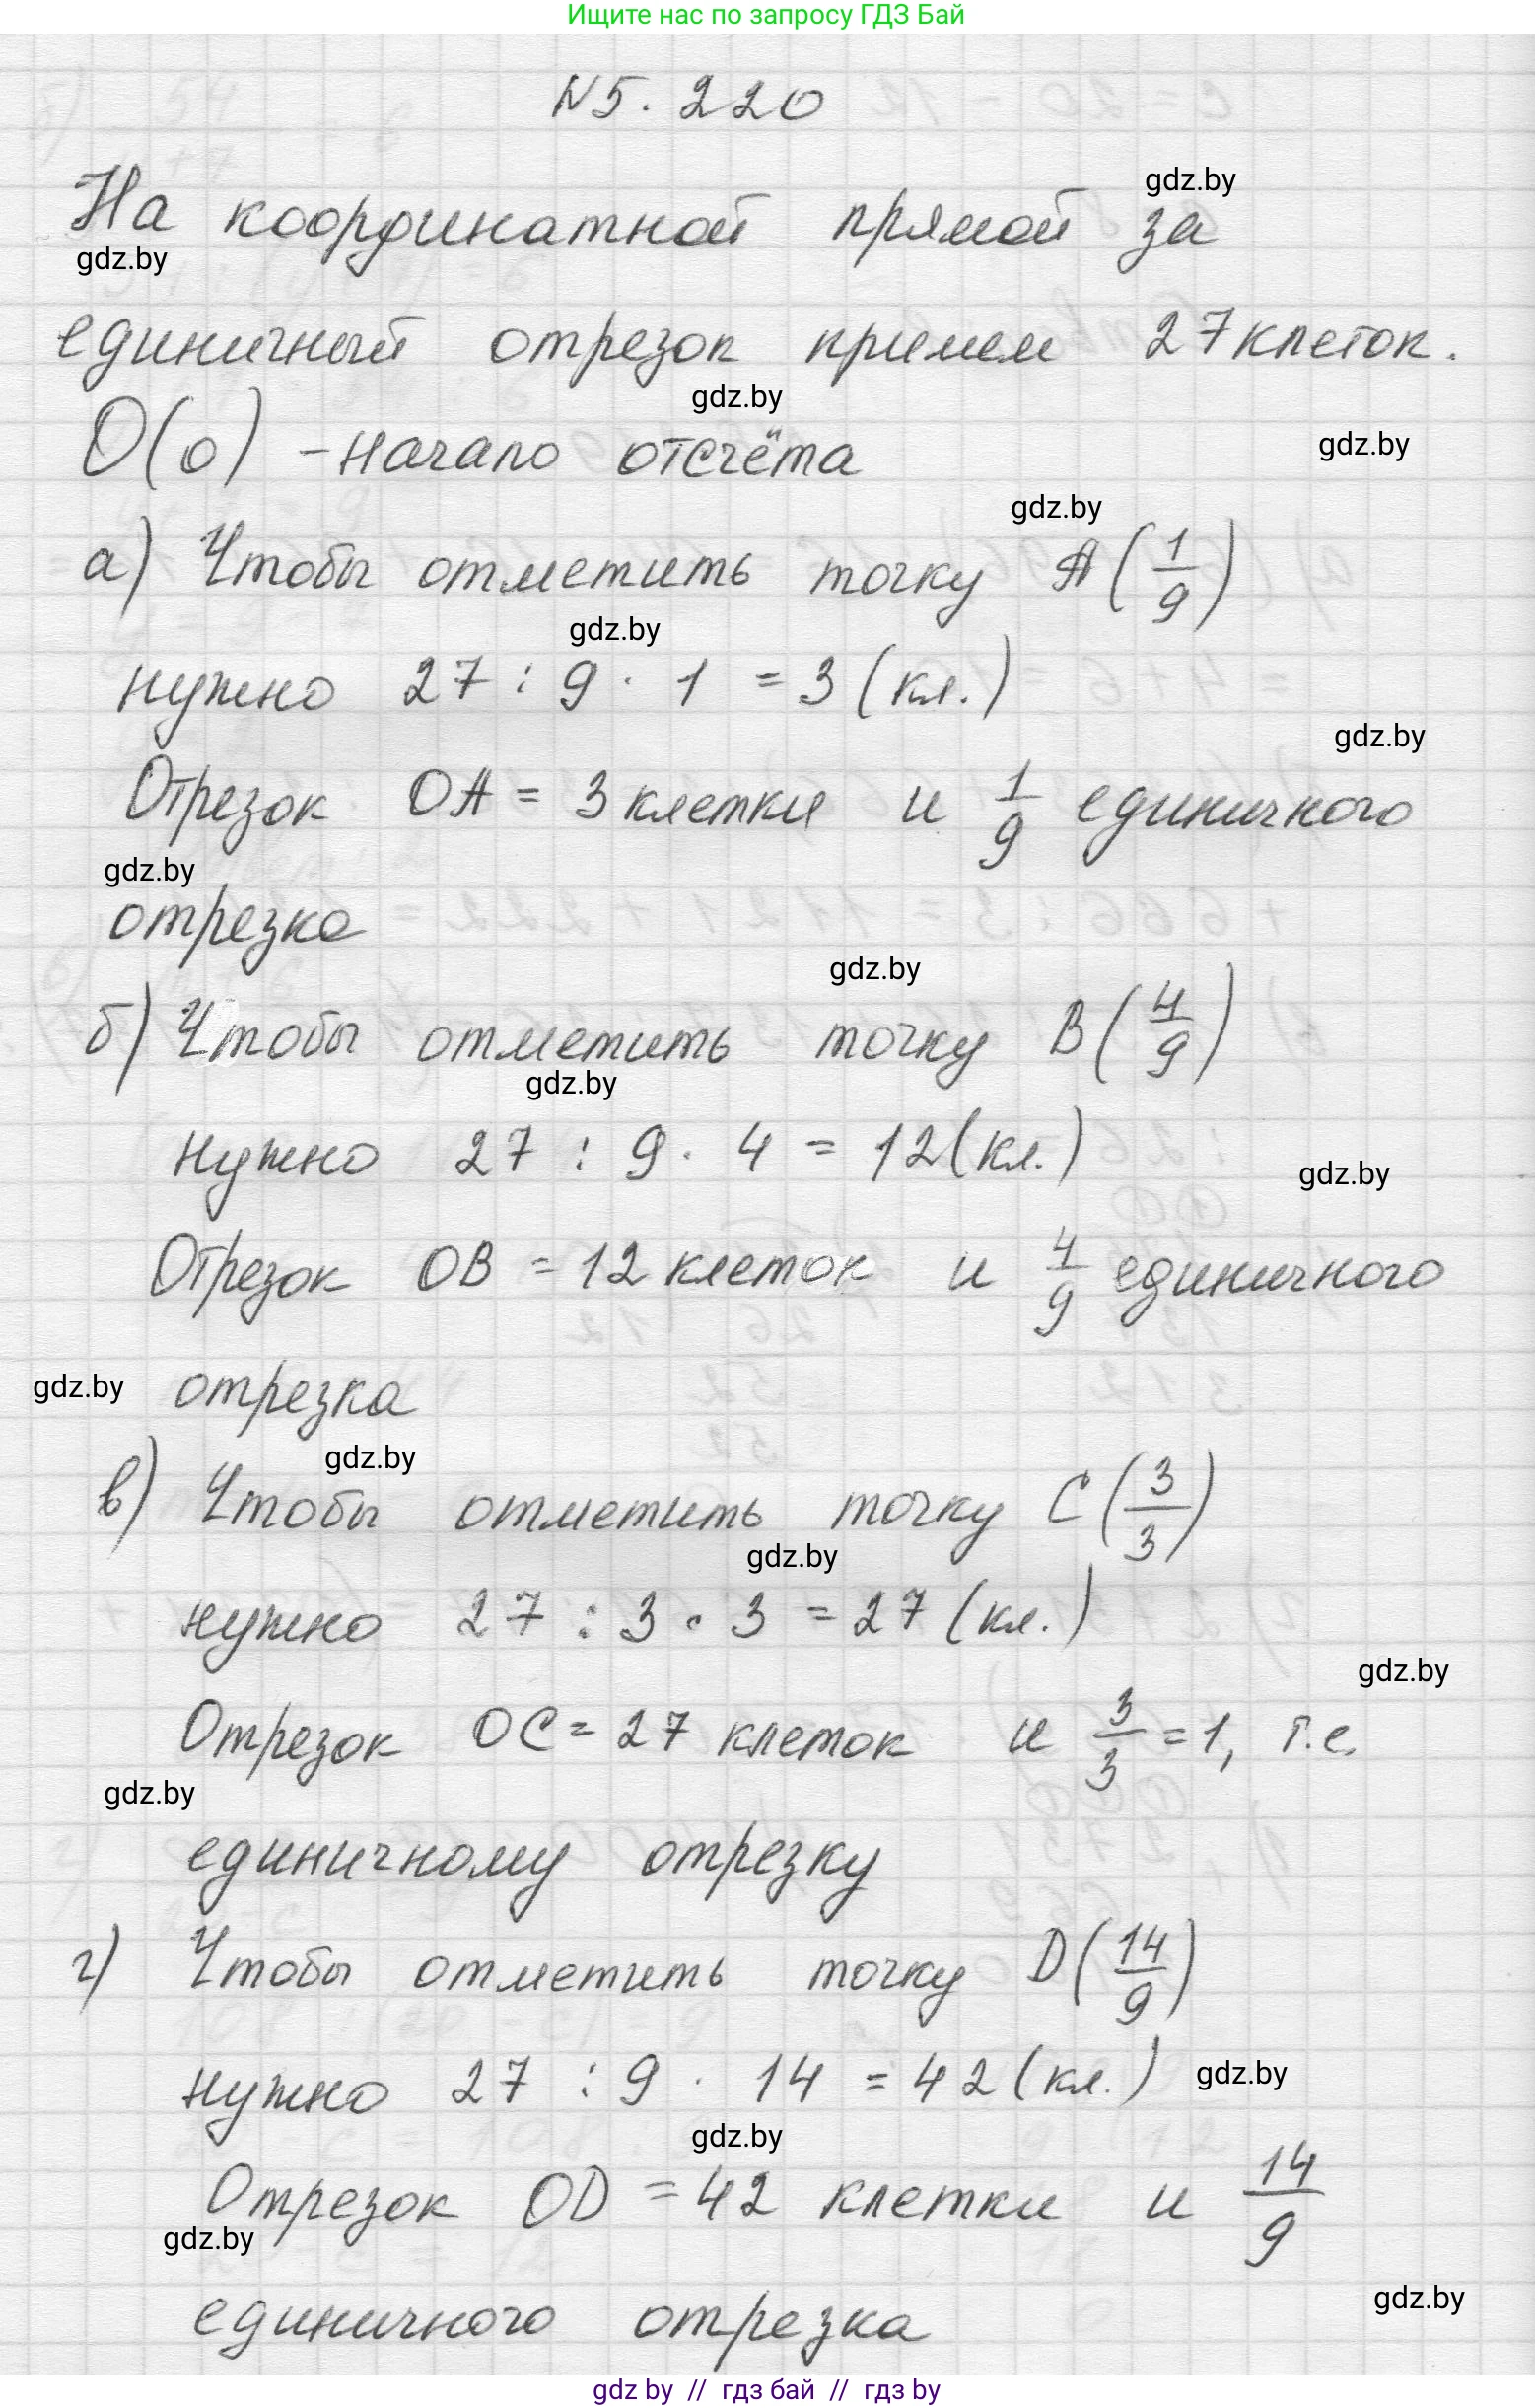 Ищите нас по запросу ГДЗ Бай
N5. 220
gdz.by
На координатной прямой за
gdz.by
единичный отрезок примем 27 клеток.
gdz.by
O(0) - начало отсчёта
gdz.by
gdz.by
а) Чтобы отметить точку A(1/9)
gdz.by
нужно 27 : 9 · 1 = 3 (кл.)
gdz.by
Отрезок OA = 3 клетки и 1/9 единичного
gdz.by
отрезка
gdz.by
б) Чтобы отметить точку B(4/9)
gdz.by
нужно 27 : 9 · 4 = 12 (кл.)
gdz.by
Отрезок OB = 12 клеток и 4/9 единичного
gdz.by отрезка
gdz.by
в) Чтобы отметить точку C(3/3)
gdz.by
нужно 27 : 3 · 3 = 27 (кл.)
gdz.by
Отрезок OC = 27 клеток и 3/3 = 1, т.е.
gdz.by
единичному отрезку
г) Чтобы отметить точку D(14/9)
нужно 27 : 9 · 14 = 42 (кл.) gdz.by
gdz.by
Отрезок OD = 42 клетки и 14/9
gdz.by
gdz.by
единичного отрезка
gdz.by // гдз бай // гдз by